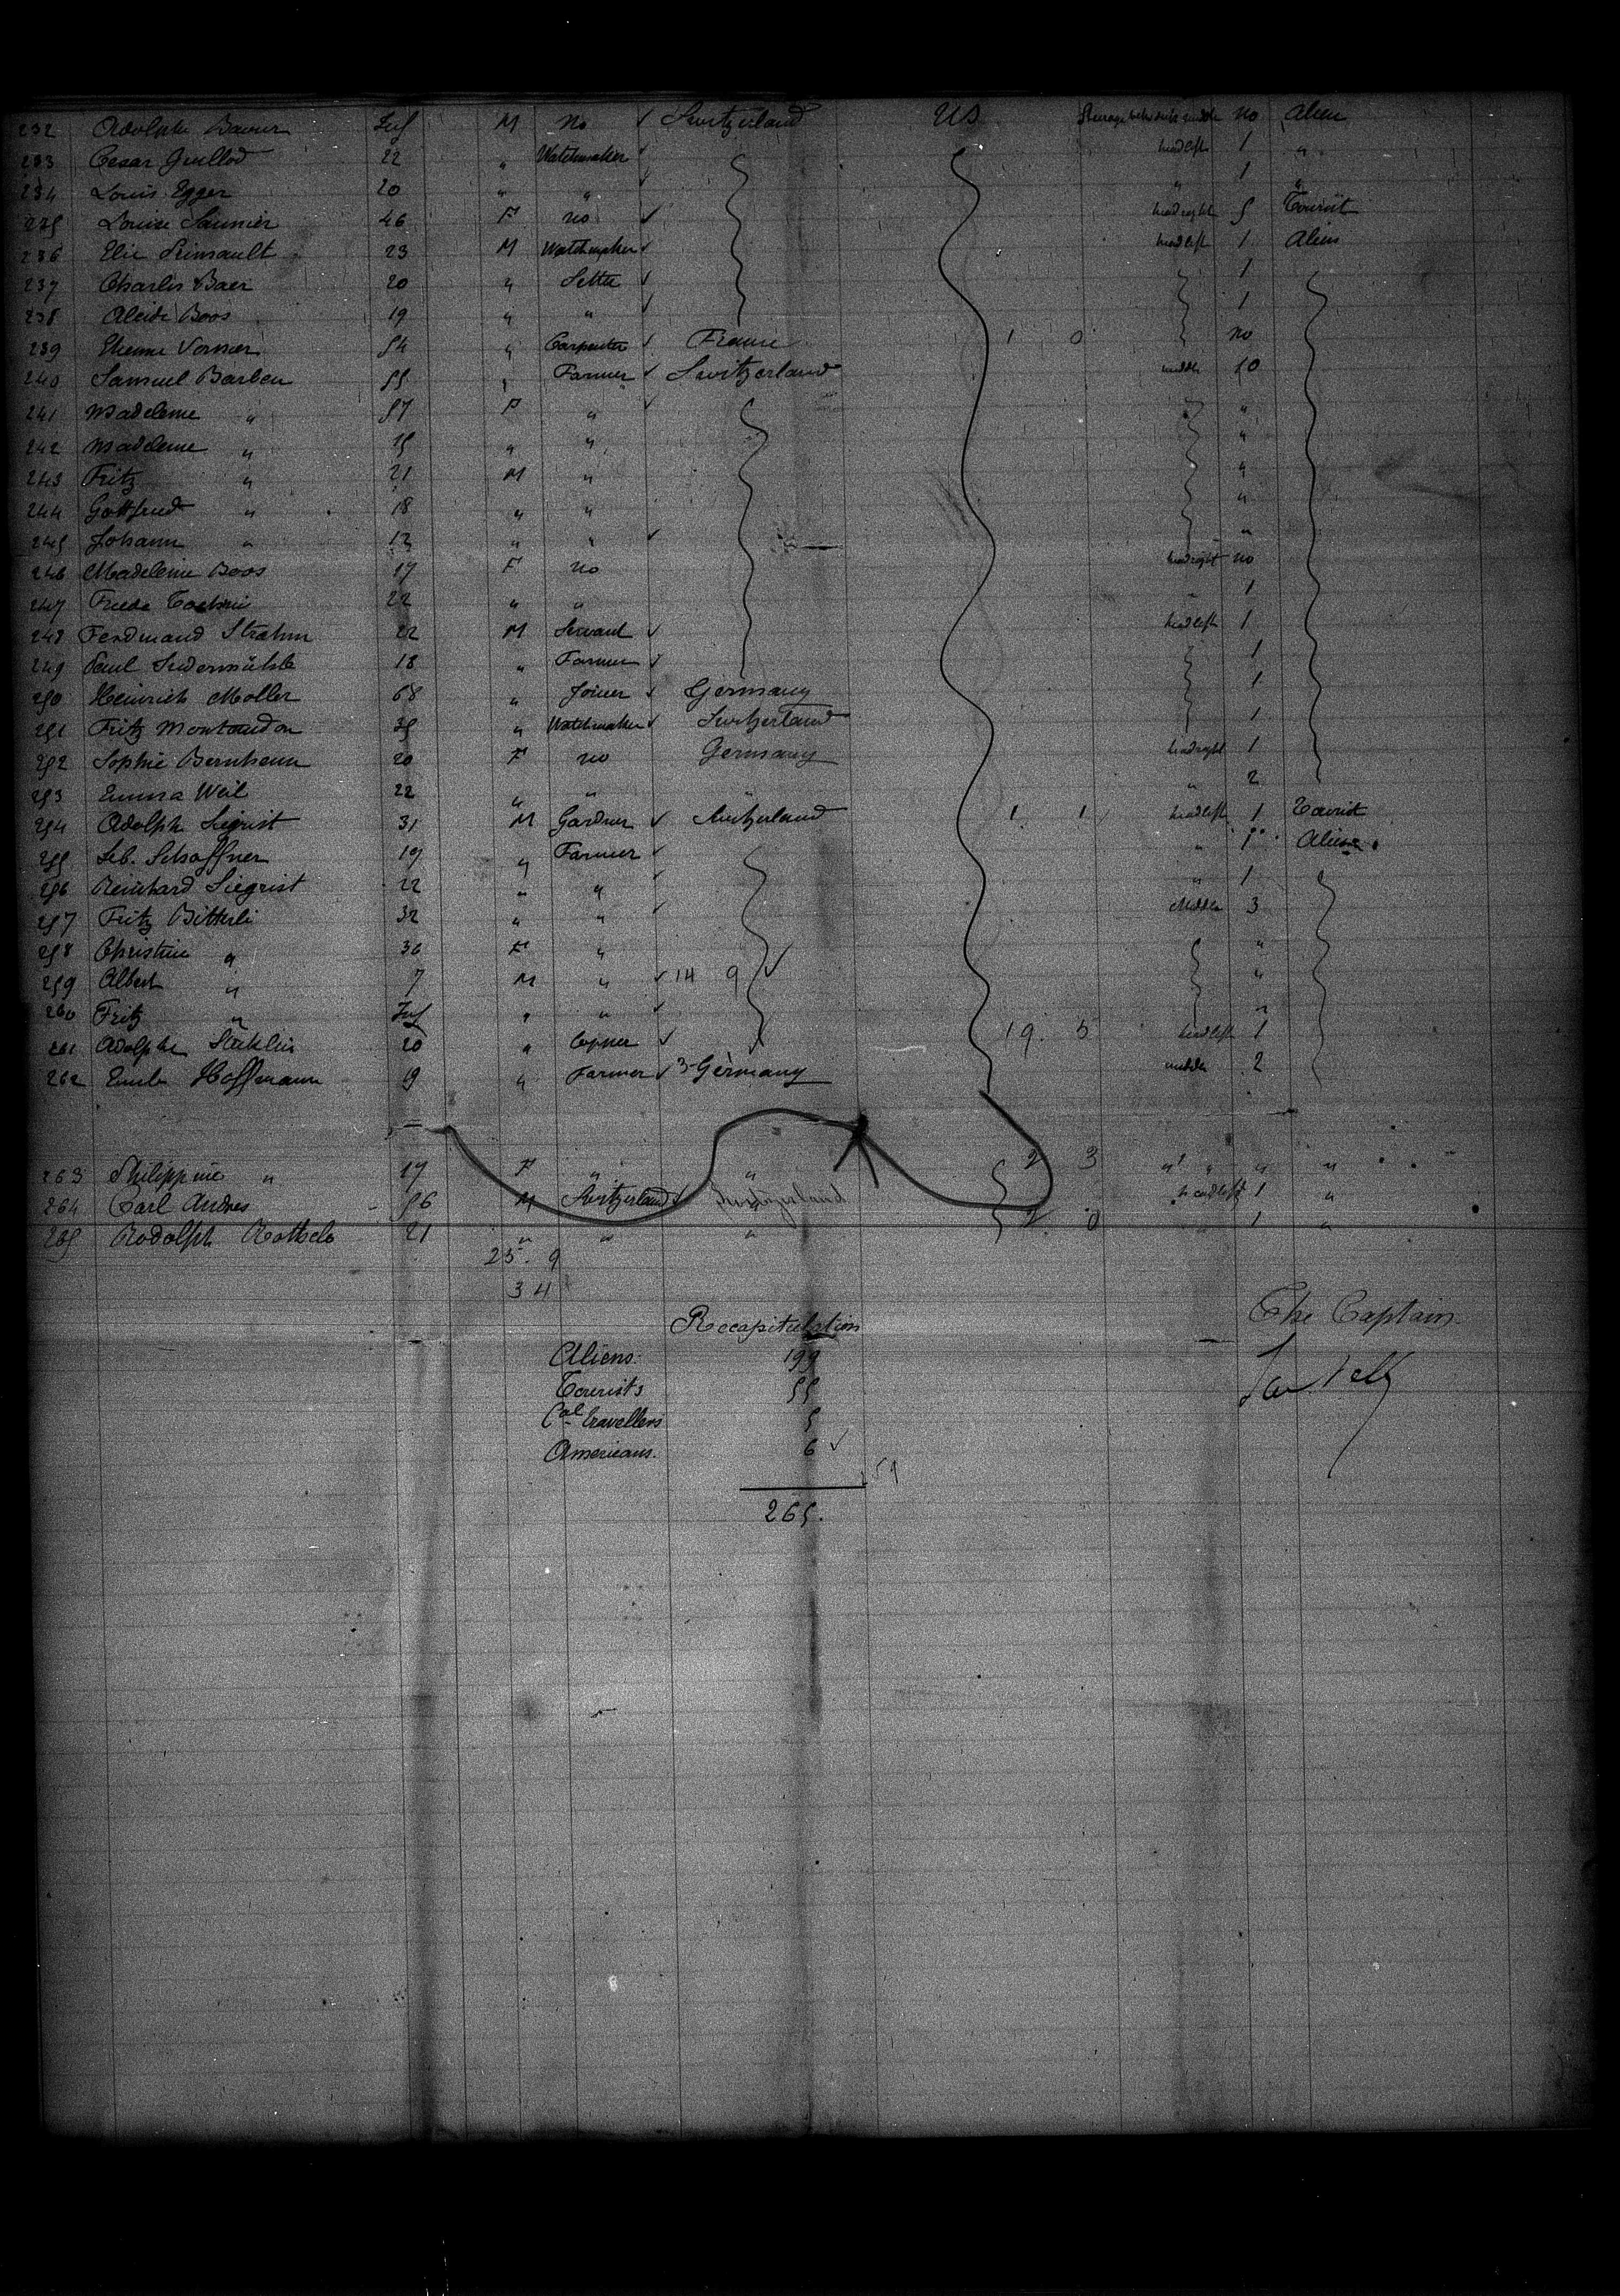 232 Adolphe Bauer Inf M no ✓ Switzerland US Steerage no Alien
233 Cesar Grullod 22 " Watchmaker ✓ head left 1 "
234 Louis Egger 20 " " ✓ " 1 "
235 Louise Saunier 46 F no ✓ head right 5 Tourist
236 Elie 23 M Watchmaker ✓ head left 1 Alien
237 Charles Baer 20 " ✓ 1
238 Aleide Boos 19 " " ✓ 1
239 Etienne Vernier 54 " Carpenter ✓ France 1 0 no
240 Samuel Barben 55 " Farmer ✓ Switzerland middle 10
241 Madeleine " 57 F " ✓ "
242 Madeleine " 15 " " "
243 Fritz " 21 M " "
244 Gottfried " 18 " " "
245 Johann " 12 " " ✓ "
246 Madeleine Boos 17 F no head right no
247 Frieda 22 " " " 1
248 Ferdinand Strahm 22 M Servant ✓ head left 1
249 Paul 18 " Farmer ✓ 1
250 Heinrich Moller 68 " Joiner ✓ Germany 1
251 Fritz Montandon 35 " Watchmaker ✓ Switzerland 1
252 Sophie Bernheim 20 F no Germany head right 1
253 Emma Weil 22 " " " 2
254 Adolph Siegrist 31 M Gardner ✓ Switzerland 1 1 head left 1 Tourist
255 Seb. Schaffner 19 " Farmer ✓ " 1 Alien
256 Reinhard Siegrist 22 " " ✓ " 1
257 Fritz Bitterli 32 " " ✓ Middle 3
258 Christine " 36 F " "
259 Albert " 7 M " ✓ 14 9 ✓ "
260 Fritz " Inf " " ✓ "
261 Adolphe Stöcklin 20 " ✓ 19. 5 head left 1
262 Emile Hoffmann 19 " Farmer ✓ 3 Germany middle 2
263 Philippine " 17 F " " 2 3 " " " "
264 Carl Andres 56 M Switzerland ✓ head left 1 "
265 Rodolph 21 " " " 2 0 1 "
25. 9
34
Recapitulation The Captain
Aliens. 199
Tourists 55
Cal travellers 5
Americans. 6 ✓
265.